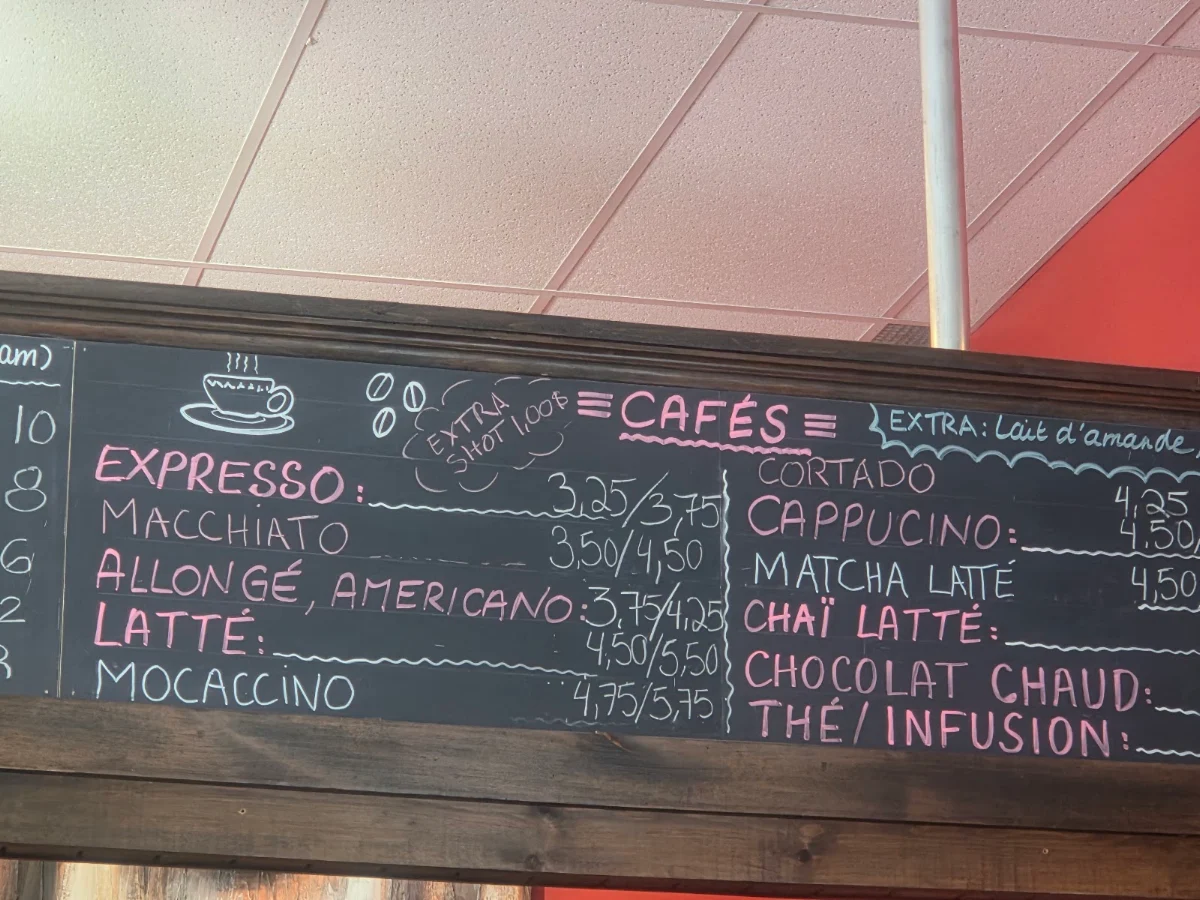 am)
10
8
6
2
≡ CAFÉS ≡
EXTRA
SHOT 1,00$
EXPRESSO: 3,25/3,75
MACCHIATO 3,50/4,50
ALLONGÉ, AMERICANO: 3,75/4,25
LATTÉ: 4,50/5,50
MOCACCINO 4,75/5,75
EXTRA: Lait d'amande,
CORTADO 4,25
CAPPUCINO: 4,50/
MATCHA LATTÉ 4,50
CHAÏ LATTÉ:
CHOCOLAT CHAUD:
THÉ/INFUSION: